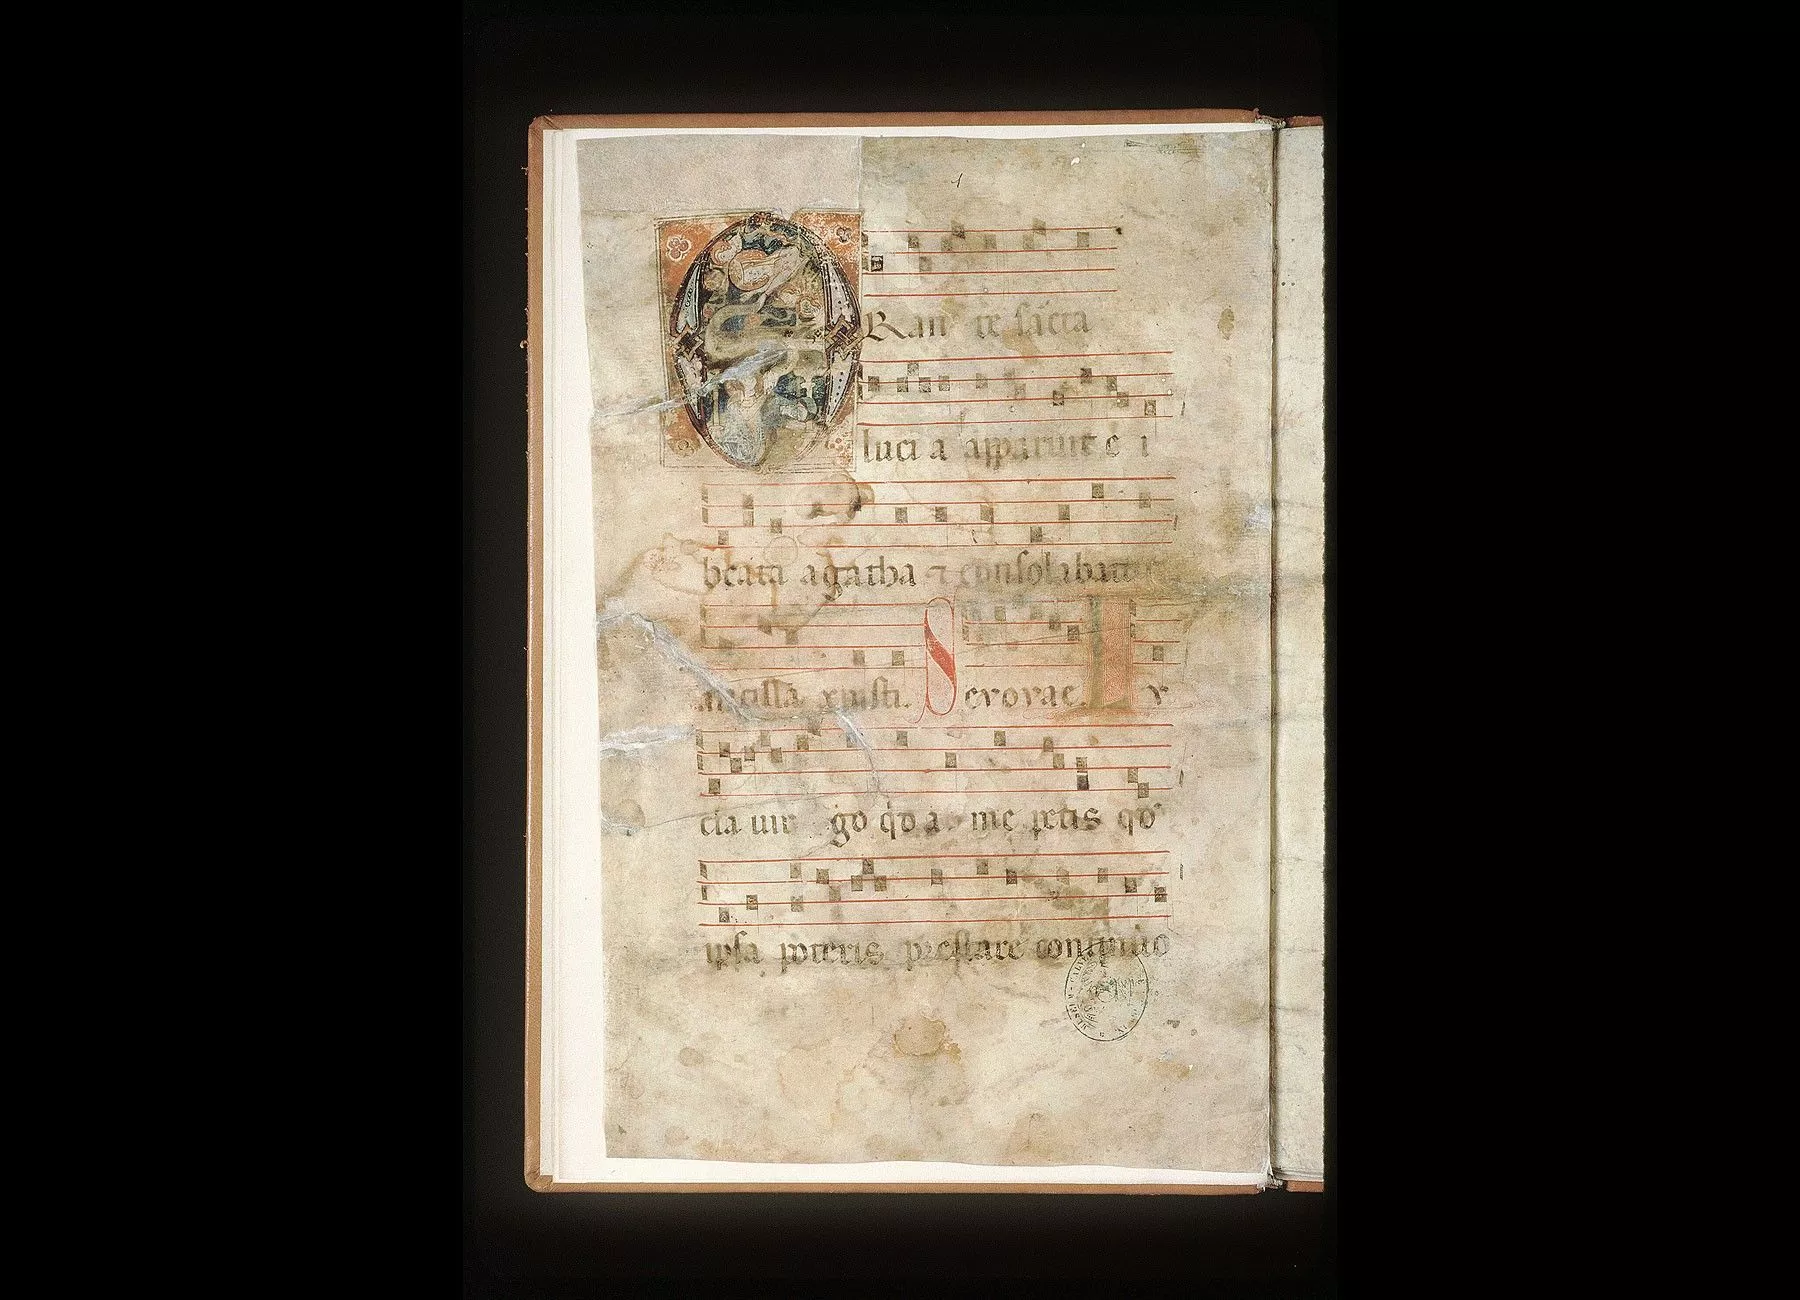 1
ORan te sācta
luci a apparuit e i
beata agatha ⁊ consolabatur
ancilla xpisti. Sevovae. Lu
cia uir go qd a me petis qd
ipsa poteris prestare continuo